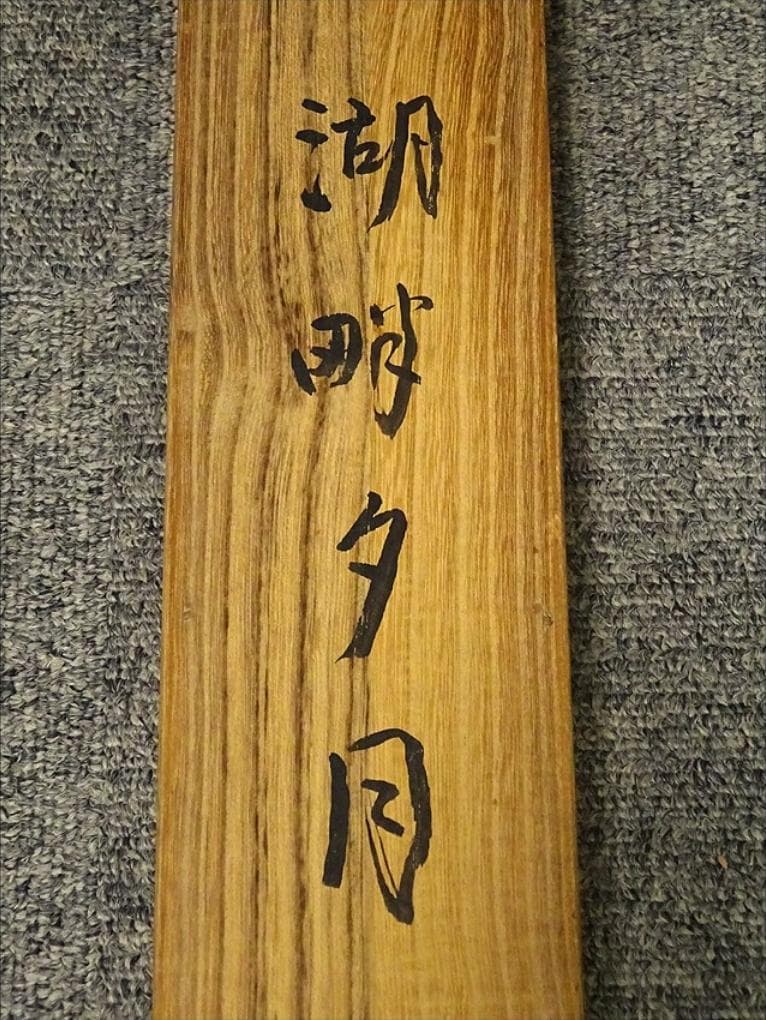 湖畔夕月